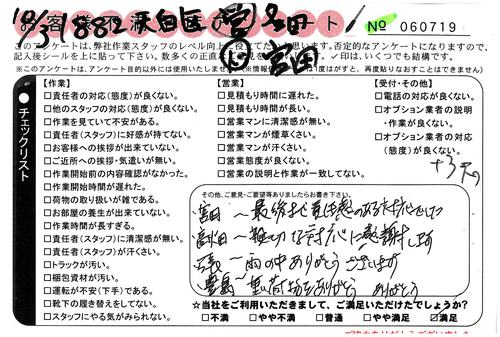 10/31 8812 天白区 営 名田
№ 060719
作 宮田
このアンケートは、弊社作業スタッフのレベル向上に役立てたいと思います。否定的なアンケートになりますので、
記入後シールを上に貼って下さい。数多くの正直な
✓印は、いくつでも結構です。
チェックリスト
【作業】
□責任者の対応(態度)が良くない。
□他のスタッフの対応(態度)が良くない。
□作業を見ていて不安がある。
□責任者(スタッフ)に好感が持てない。
□お客様への挨拶が出来ていない。
□ご近所への挨拶・気遣いが無い。
□作業開始前の内容確認がなかった。
□作業開始時間が遅れた。
□荷物の取り扱いが雑である。
□お部屋の養生が出来ていない。
□作業時間が長すぎる。
□責任者(スタッフ)に清潔感が無い。
□責任者(スタッフ)が汗くさい。
□トラックが汚い。
□梱包資材が汚い。
□運転が不安(下手)である。
□靴下の履き替えをしてない。
□スタッフにやる気がみられない。
【営業】
□見積もり時間に遅れた。
□見積もり時間が長い。
□営業マンに清潔感が無い。
□営業マンが煙草くさい。
□営業マンが汗くさい。
□営業態度が良くない。
□営業の説明と作業が一致してない。
【受付・その他】
□電話の対応が良くない。
□オプション業者の説明
・作業が良くない。
□オプション業者の対応
(態度)が良くない。
その他、ご意見・ご要望等ありましたらお書き下さい。
宮田 〜 最後まで責任感のある対応でした
〜 親切な対応に感謝します
〜 雨の中ありがとうございます
豊島 〜 重い荷物をありがとう ありがとう
★当社をご利用いただきまして、ご満足いただけたでしょうか?
□不満 □やや不満 □普通 □やや満足 ☑満足